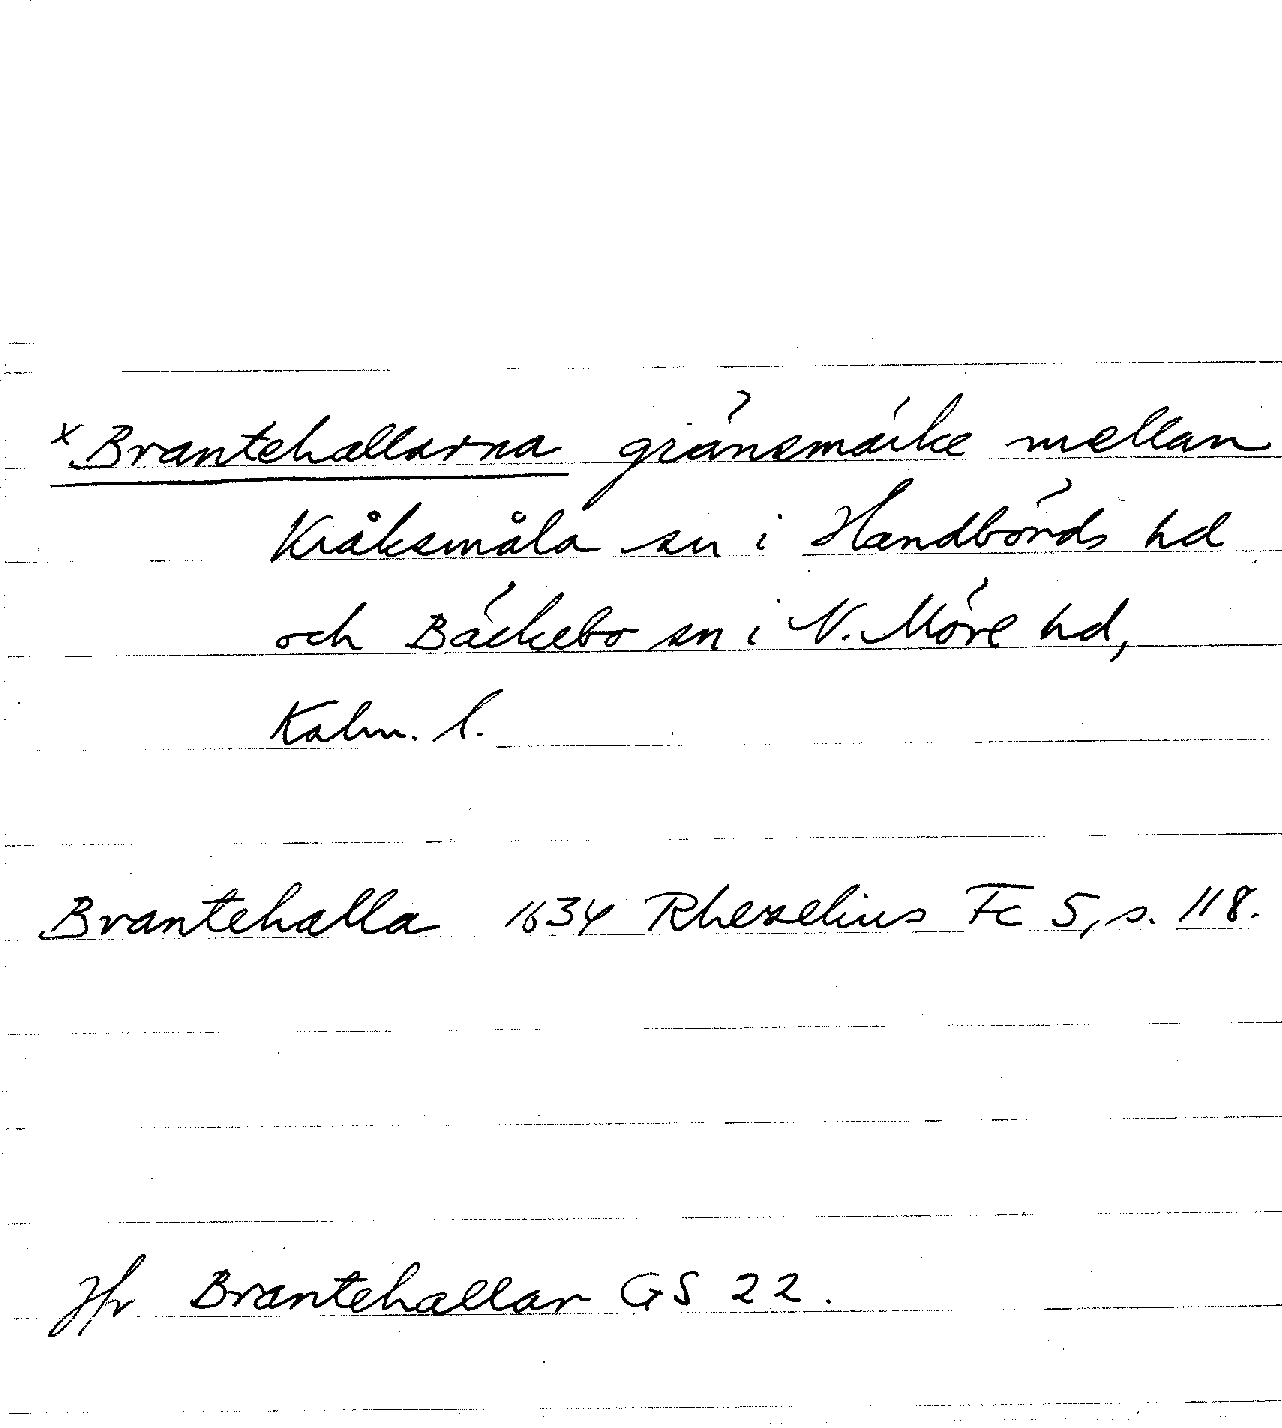 x Brantehallarna gränsmärke mellan
Kråksmåla sn i Handbörds hd
och Bäckebo sn i N. Möre hd,
Kalm. l.
Brantehalla 1634 Rhezelius Fc 5, s. 118.
Jfr Brantehallar GS 22.